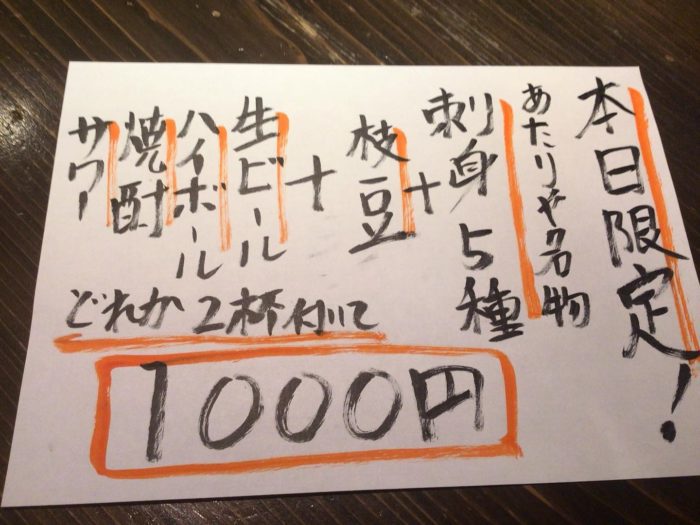 本日限定!
あたりや名物
刺身5種
+
枝豆
+
生ビール
ハイボール
焼酎
サワー
どれか2杯付いて
1000円